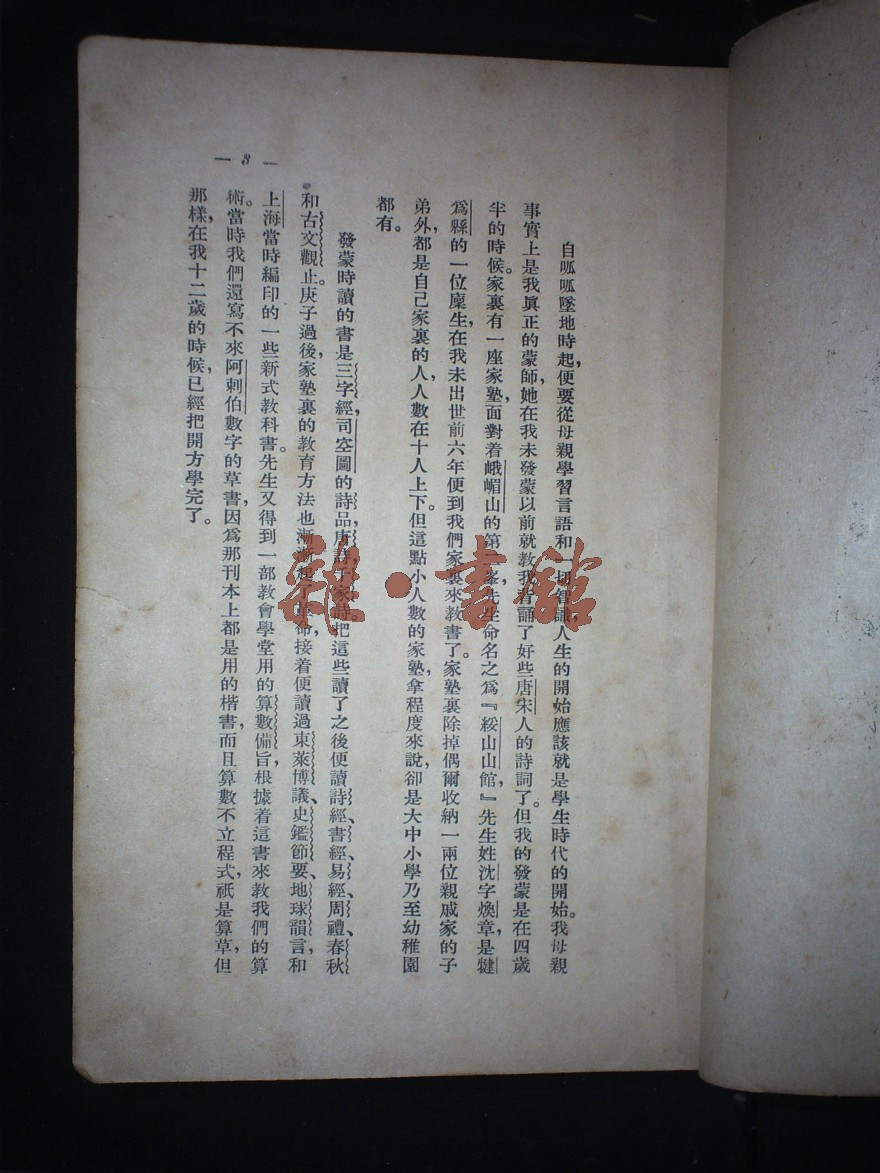 自呱呱墜地時起，便要從母親學習言語和一切智識，人生的開始應該就是學生時代的開始。我母親
事實上是我眞正的蒙師，她在我未發蒙以前就敎我背誦了好些唐宋人的詩詞了。但我的發蒙是在四歲
半的時候。家裏有一座家塾，面對着峨嵋山的第一峯，先生命名之爲『綏山山館，』先生姓沈字煥章，是犍
爲縣的一位廩生，在我未出世前六年便到我們家裏來敎書了。家塾裏除掉偶爾收納一兩位親戚家的子
弟外，都是自己家裏的人，人數在十人上下。但這點小人數的家塾，拿程度來說，卻是大中小學乃至幼稚園
都有。
發蒙時讀的書是三字經，司空圖的詩品，唐詩，千家詩。把這些讀了之後便讀詩經、書經、易經、周禮、春秋
和古文觀止。庚子過後，家塾裏的敎育方法也漸漸起了革命，接着便讀過東萊博議、史鑑節要、地球韻言，和
上海當時編印的一些新式敎科書。先生又得到一部敎會學堂用的算數備旨，根據着這書來敎我們的算
術。當時我們還寫不來阿剌伯數字的草書，因爲那刊本上都是用的楷書，而且算數不立程式，祇是算草，但
那樣，在我十二歲的時候，已經把開方學完了。
— 3 —
雜·書館